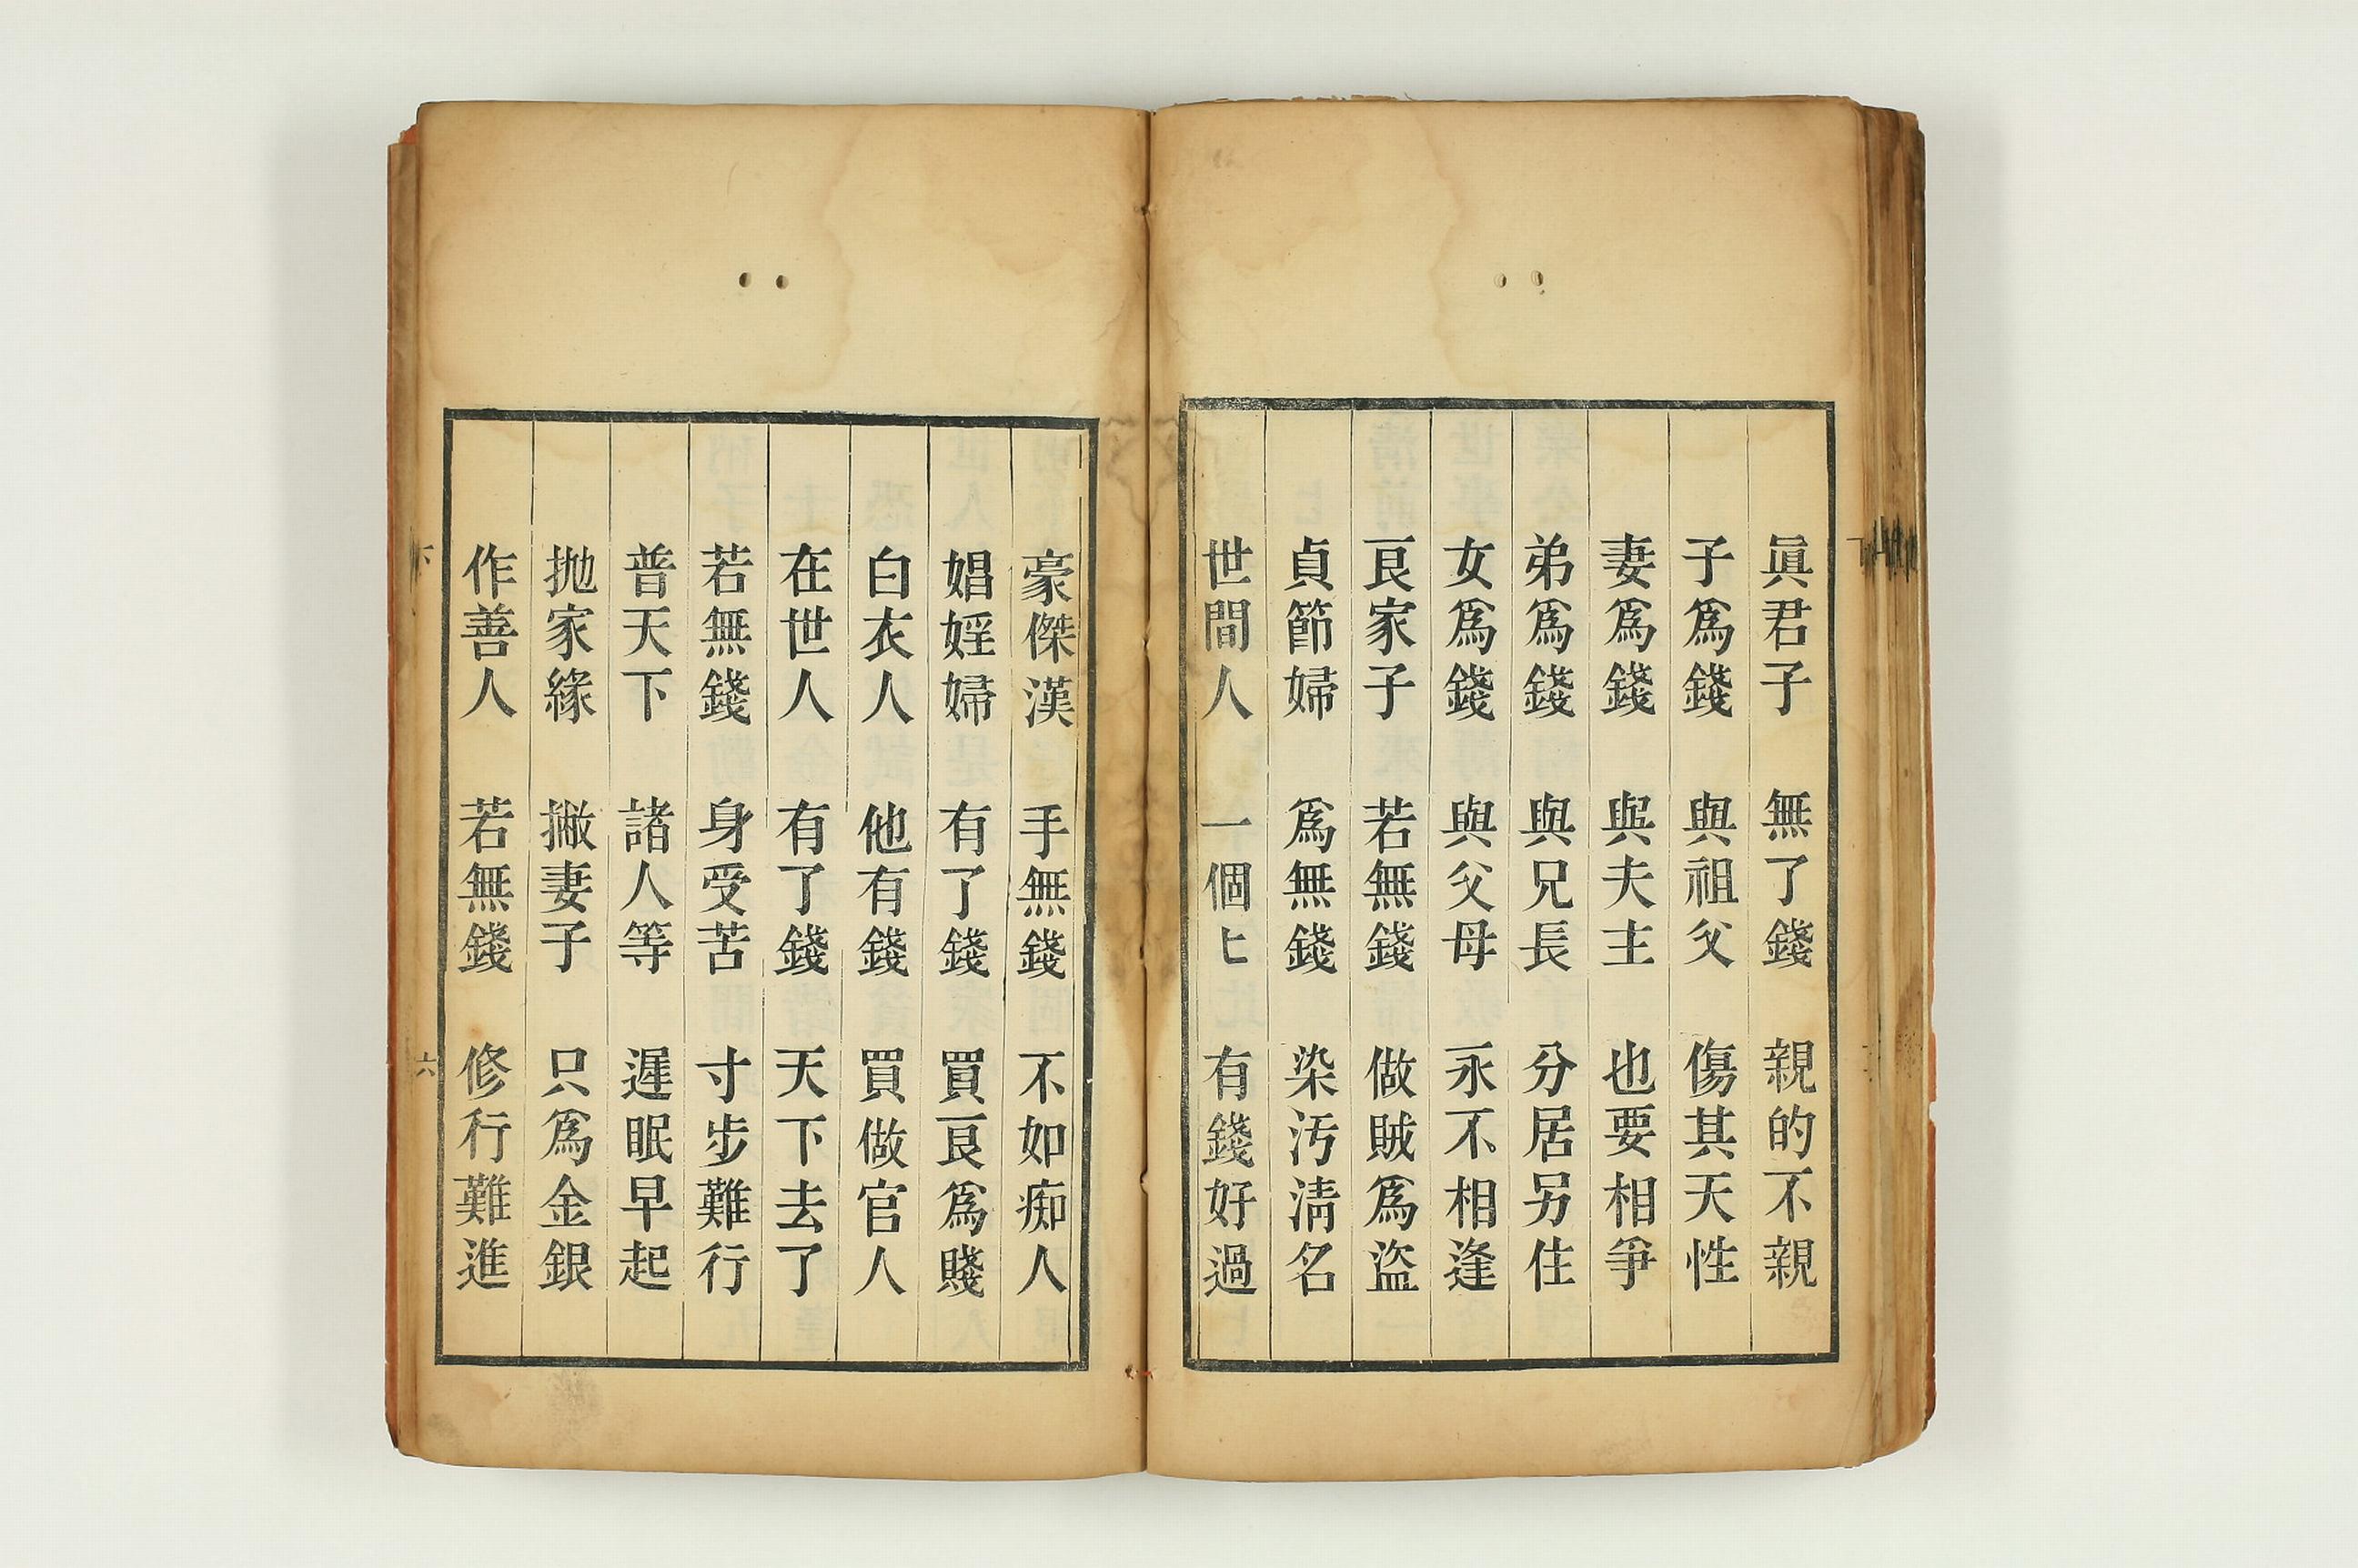 眞君子 無了錢 親的不親
子爲錢 與祖父 傷其天性
妻爲錢 與夫主 也要相爭
弟爲錢 與兄長 分居另住
女爲錢 與父母 永不相逢
良家子 若無錢 做賊爲盜
貞節婦 爲無錢 染汚淸名
世間人 一個匕 有錢好過
豪傑漢 手無錢 不如痴人
娼婬婦 有了錢 買良爲賤
白衣人 他有錢 買做官人
在世人 有了錢 天下去了
若無錢 身受苦 寸步難行
普天下 諸人等 遲眠早起
拋家緣 撇妻子 只爲金銀
作善人 若無錢 修行難進
下 六